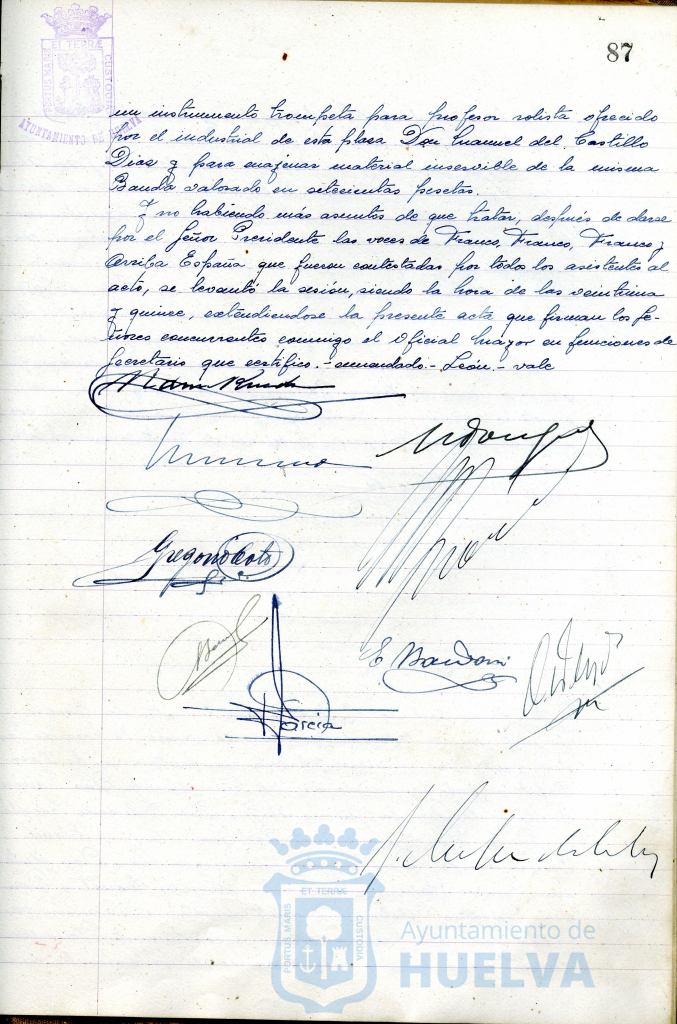 87
ET TERRÆ
PORTUS MARIS
CUSTODIA
AYUNTAMIENTO DE HUELVA
un instrumento trompeta para profesor solista ofrecido
por el industrial de esta plaza Don Manuel del Castillo
Diaz y para enajenar material inservible de la misma
Banda valorado en setecientas pesetas.
Y no habiendo más asuntos de que tratar, después de darse
por el Señor Presidente las voces de Franco, Franco, Franco y
Arriba España que fueron contestadas por todos los asistentes al
acto, se levantó la sesión, siendo la hora de las veintiuna
y quince, extendiendose la presente acta que firman los Se-
ñores concurrentes conmigo el Oficial Mayor en funciones de
Secretario que certifico.- enmendado.- León.- vale
Gregorio Coto
E
Garcia
ET TERRÆ
PORTUS MARIS
CUSTODIA
Ayuntamiento de
HUELVA